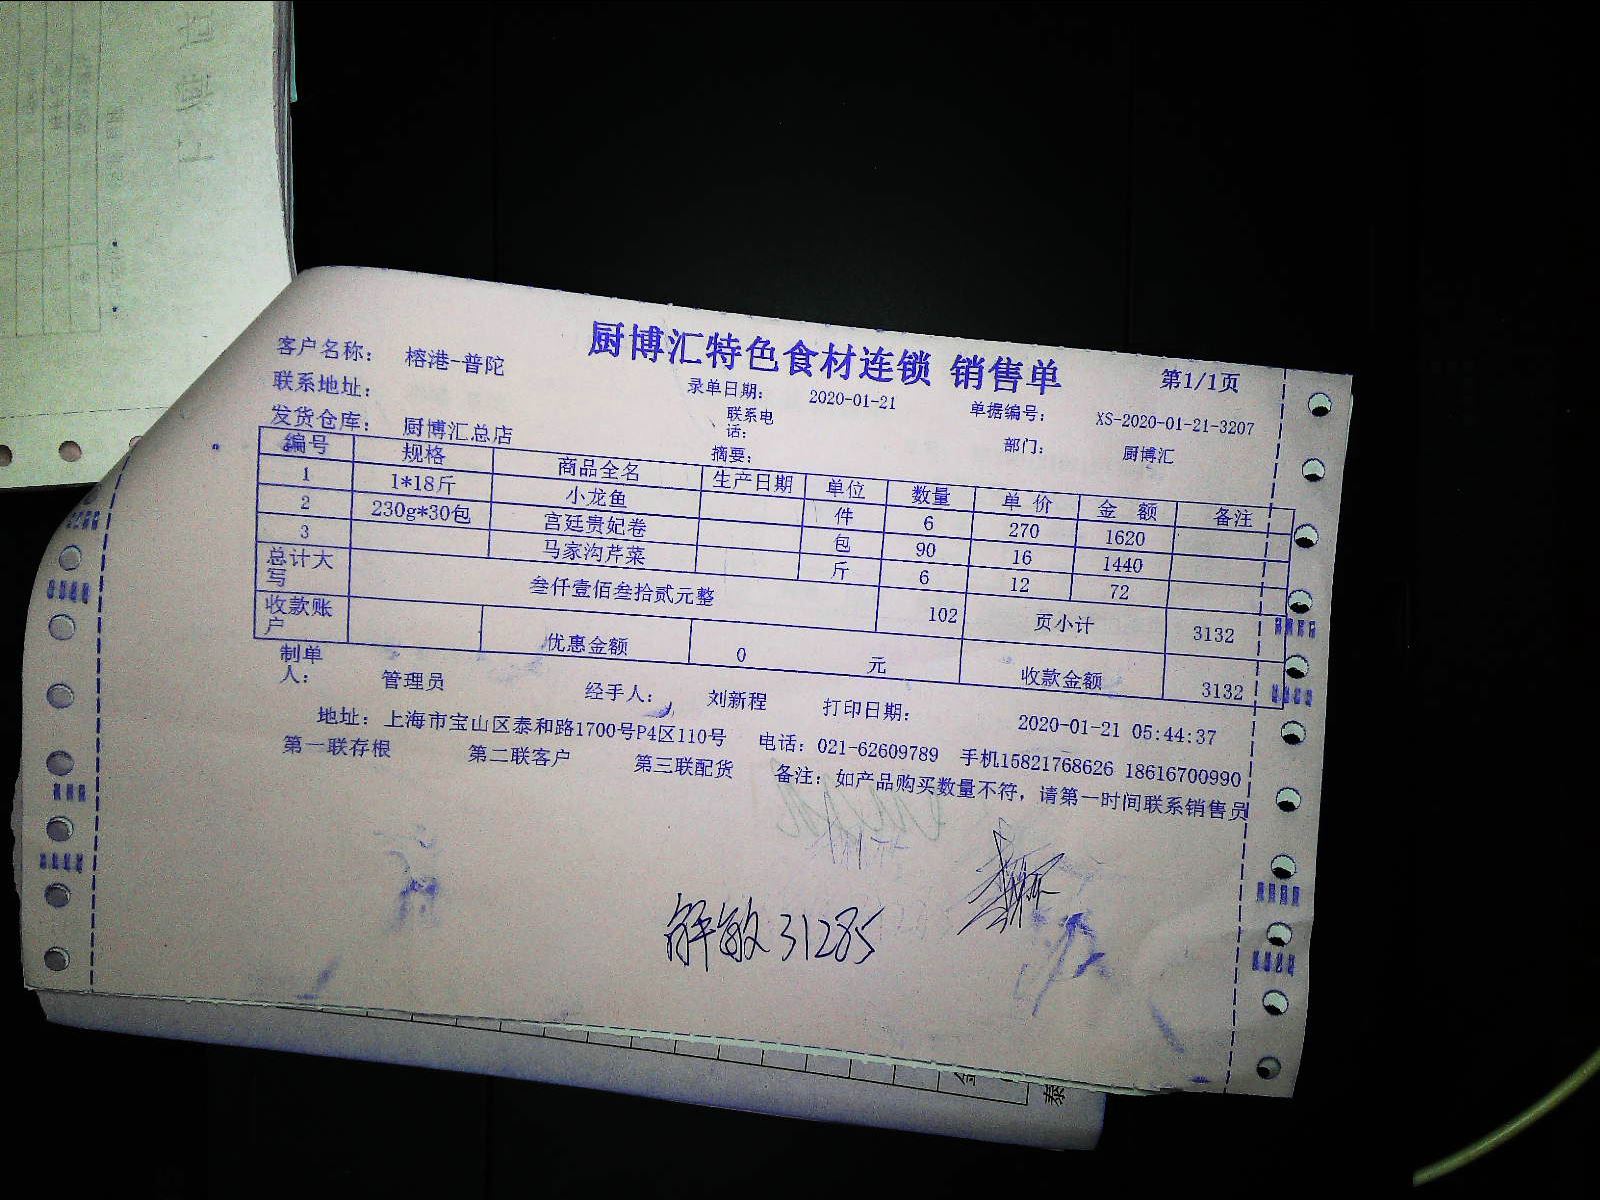 厨博汇特色食材连锁 销售单 第1/1页
客户名称： 榕港-普陀 录单日期： 2020-01-21 单据编号： XS-2020-01-21-3207
联系地址： 联系电话： 部门： 厨博汇
发货仓库： 厨博汇总店 摘要：
编号 规格 商品全名 生产日期 单位 数量 单价 金额 备注
1 1*18斤 小龙鱼 件 6 270 1620
2 230g*30包 宫廷贵妃卷 包 90 16 1440
3 马家沟芹菜 斤 6 12 72
总计大写 叁仟壹佰叁拾贰元整 102 页小计 3132
收款账户 优惠金额 0 元 收款金额 3132
制单人： 管理员 经手人： 刘新程 打印日期： 2020-01-21 05:44:37
地址：上海市宝山区泰和路1700号P4区110号 电话：021-62609789 手机15821768626 18616700990
第一联存根 第二联客户 第三联配货 备注：如产品购买数量不符，请第一时间联系销售员
解敏 31285
泰